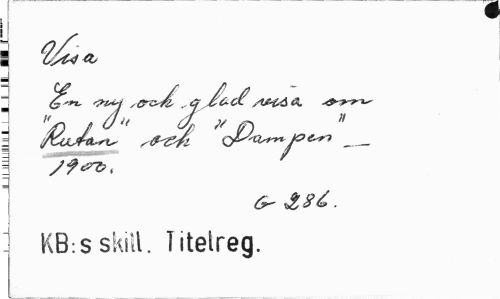 Visa
En ny och glad visa om
"Rutan" och "Dampen" —
1900.
G 286.
KB:s skill. Titelreg.